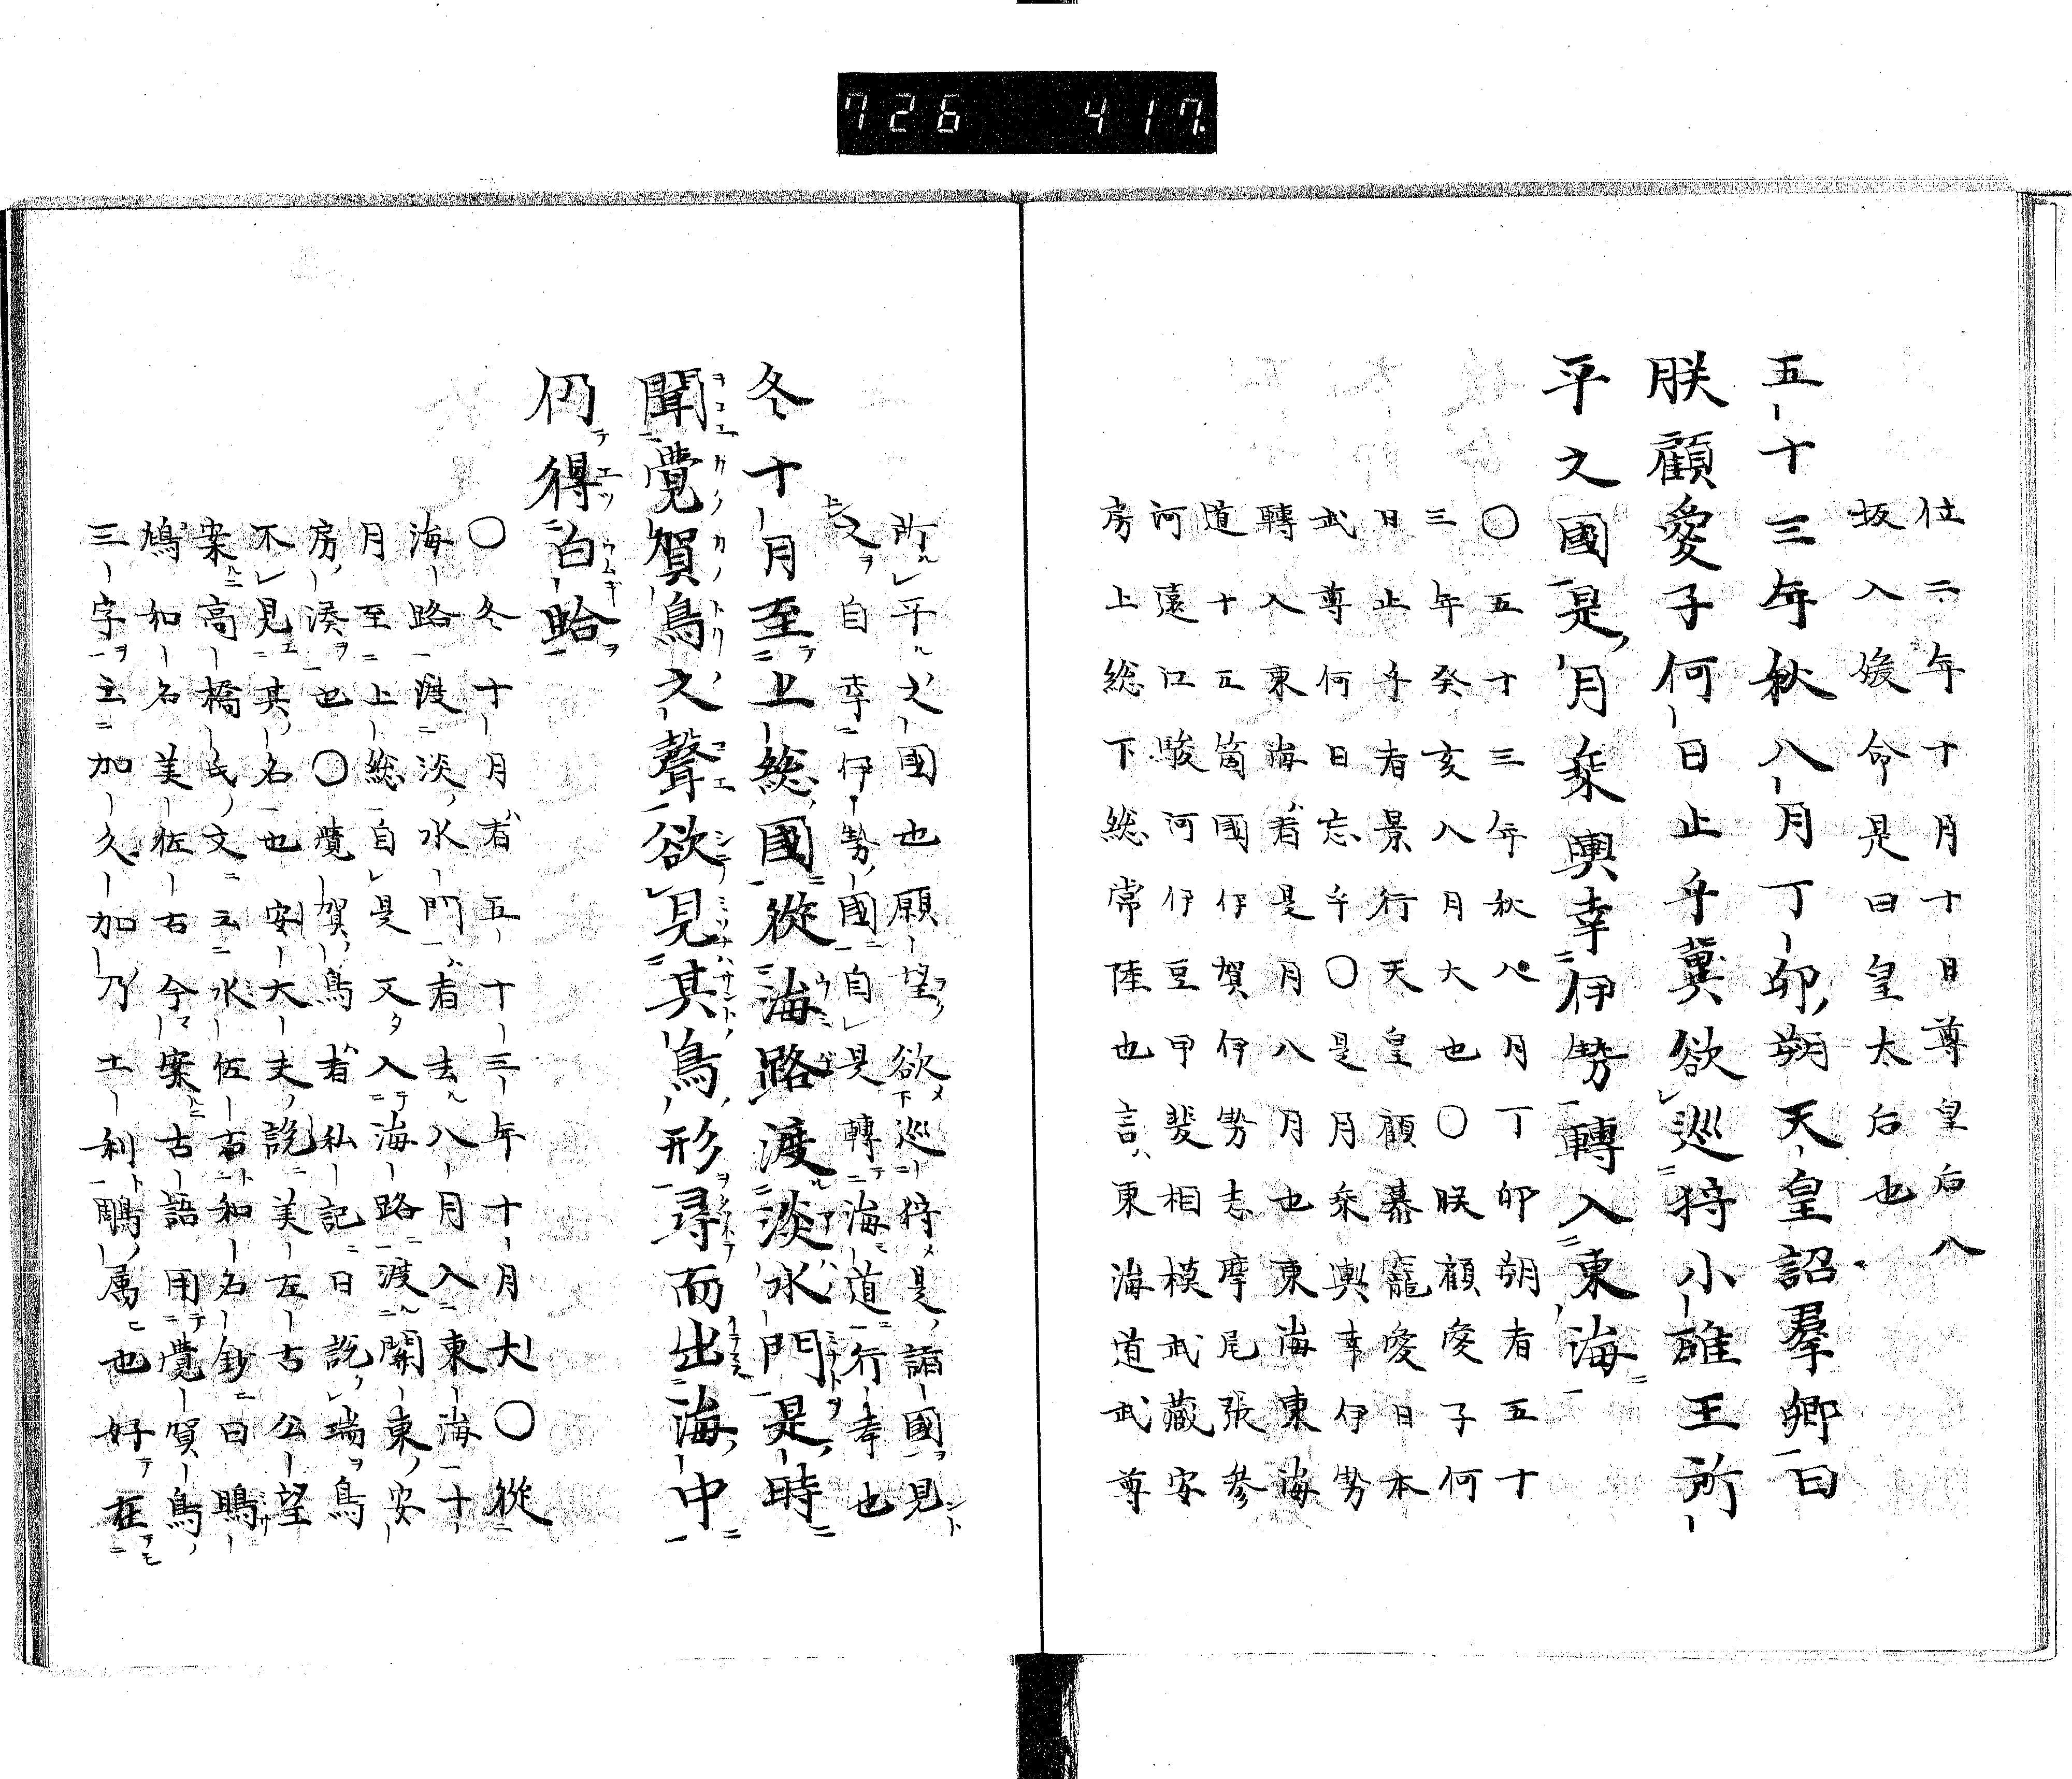 726 417.
位二年十月十日尊皇后八
坂入媛命是曰皇太后也
五十三年秋八月丁卯朔天皇詔羣卿曰
朕顧愛子何日止乎冀欲巡狩小碓王所
平之國是月乘輿幸伊勢轉入東海
〇五十三年秋八月丁卯朔者五十
三年癸亥八月大也〇朕顧愛子何
日止乎者景行天皇顧慕寵愛日本
武尊何日忘乎〇是月乘輿幸伊勢
轉入東海者是月八月也東海東海
道十五箇國伊賀伊勢志摩尾張參
河遠江駿河伊豆甲斐相模武藏安
房上総下総常陸也言東海道武尊
所平之國也願望欲巡狩是諸國見
之自幸伊勢國自是轉海道行幸也
冬十月至上総國從海路渡淡水門是時
聞覺賀鳥之聲欲見其鳥形尋而出海中
仍得白蛤
〇冬十月者五十三年十月大〇從
海路渡淡水門者去八月入東海十
月至上総自是又入海路渡關東安
房湊也〇覺賀鳥者私記曰説瑞鳥
不見其名也安大夫説美左古公望
案高橋氏文云水佐古和名鈔曰鵰
鳩和名美佐古今案古語用覺賀鳥
三字云加久加乃土利鵰属也好在